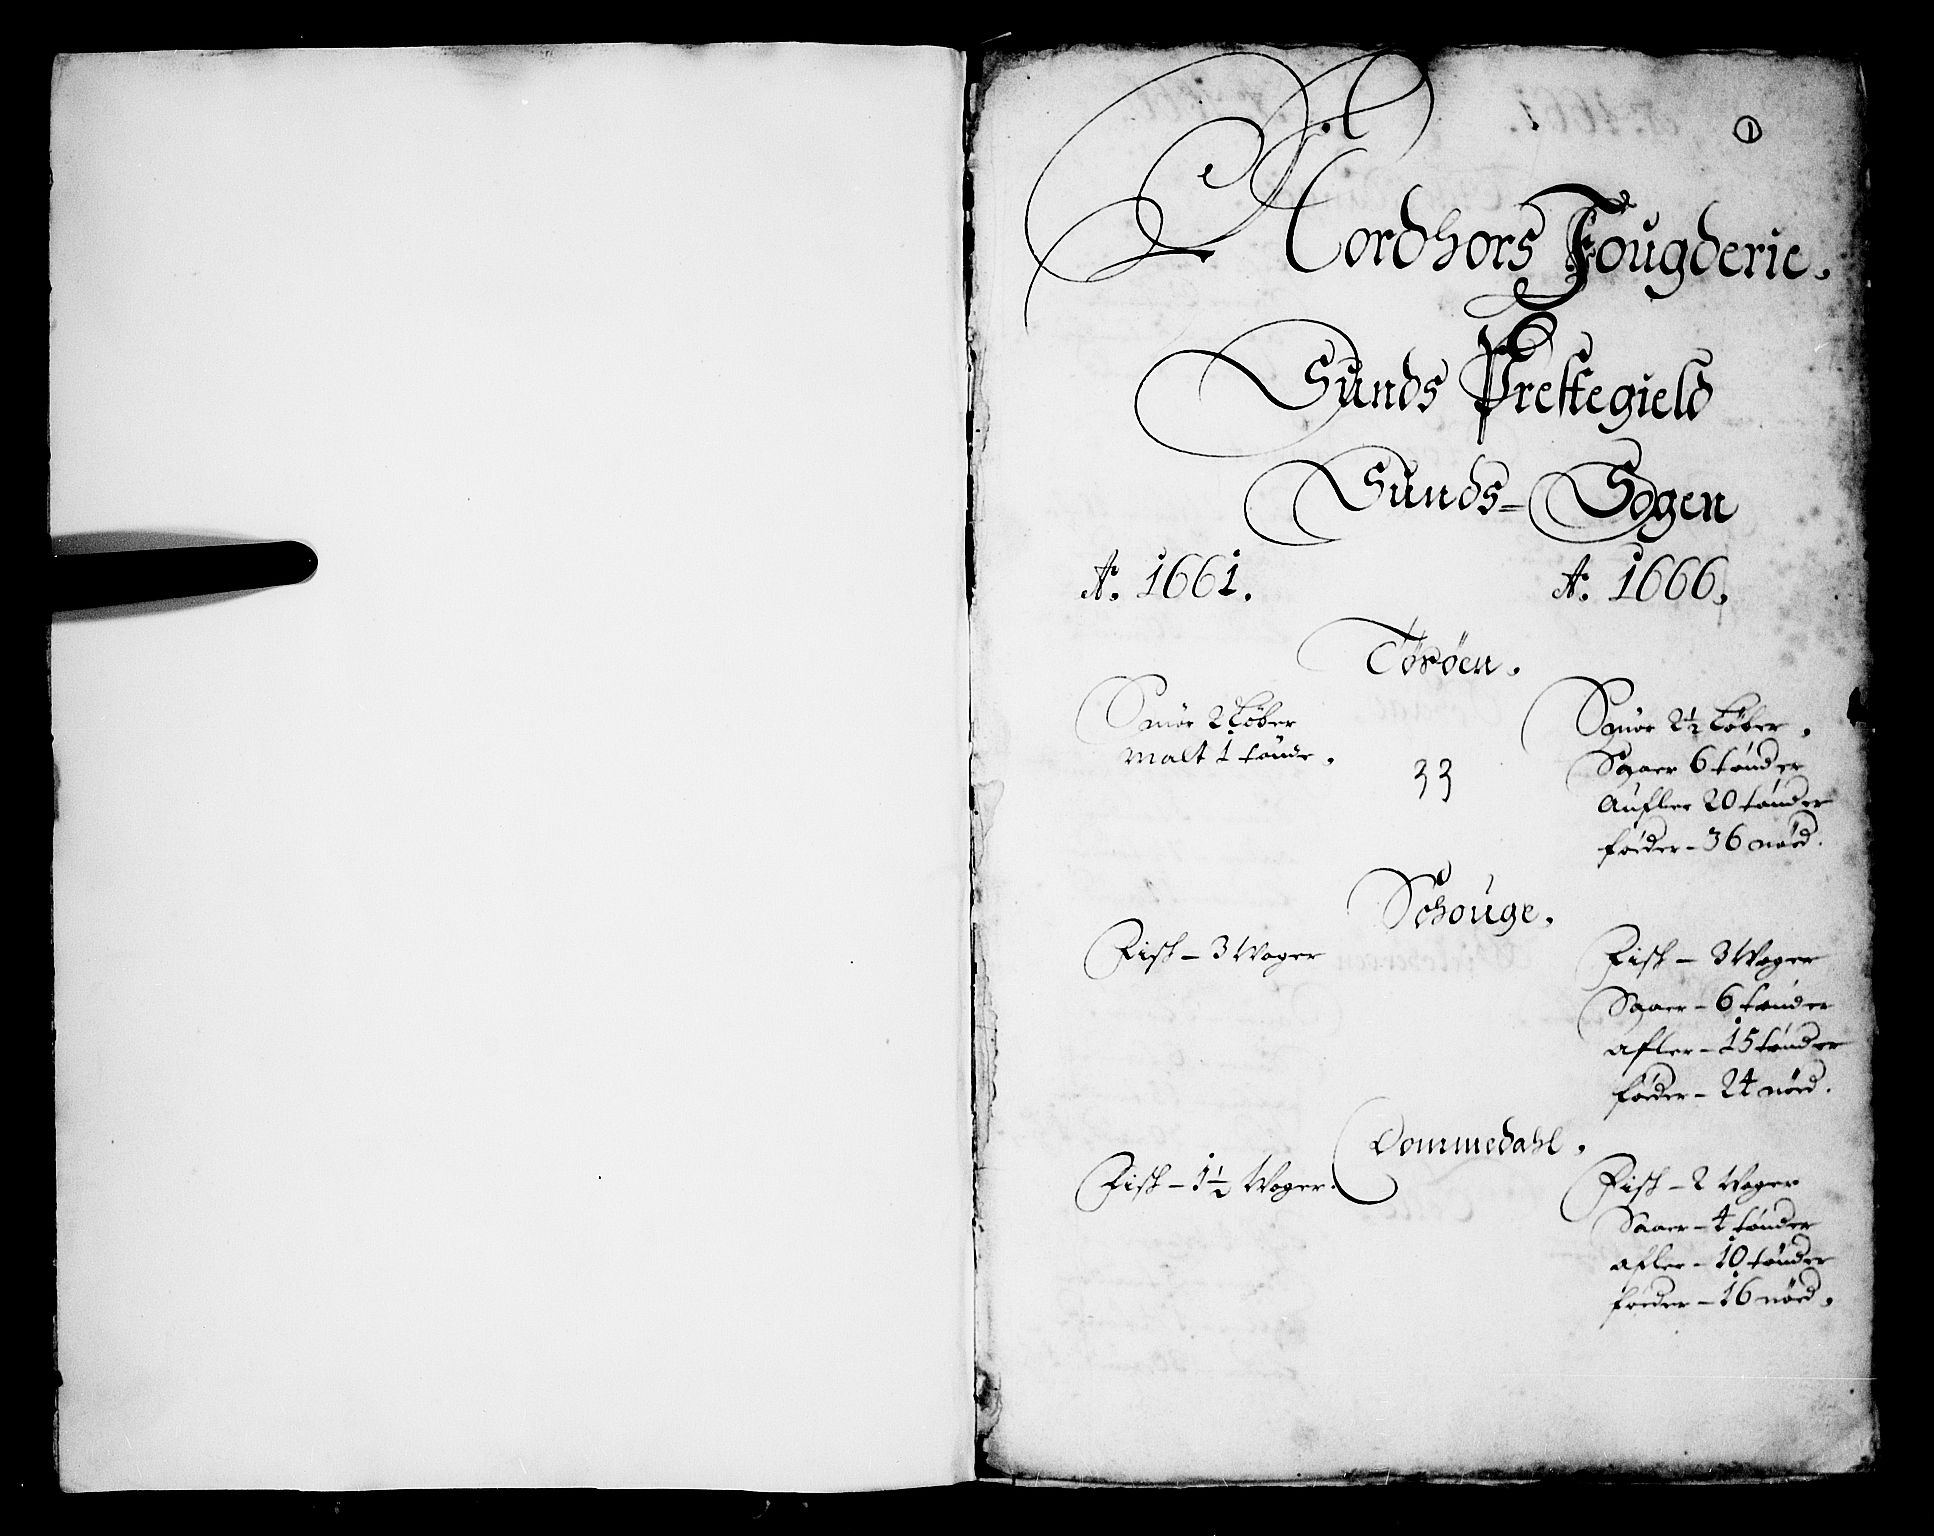 1
Nordhors Fougderie.
Sunds Prestegield
Sunds= Sogen
Ao. 1661. Ao. 1666.
Toröen.
Smör 2 Løber
Malt 1 tönde.
33
Smör 2½ Løber.
Saaer 6 tönder
Aufler 20 tönder
føeder - 36 nöed.
Schouge.
Fisk - 3 Woger
Fisk - 3 Woger
Saaer - 6 tönder
afler - 15 tönder
föeder - 24 nöed.
Dommedahl.
Fisk - 1½ Woger.
Fisk - 2 Woger
Saaer - 4 tönder
afler - 10 tönder
föeder - 16 nöed.